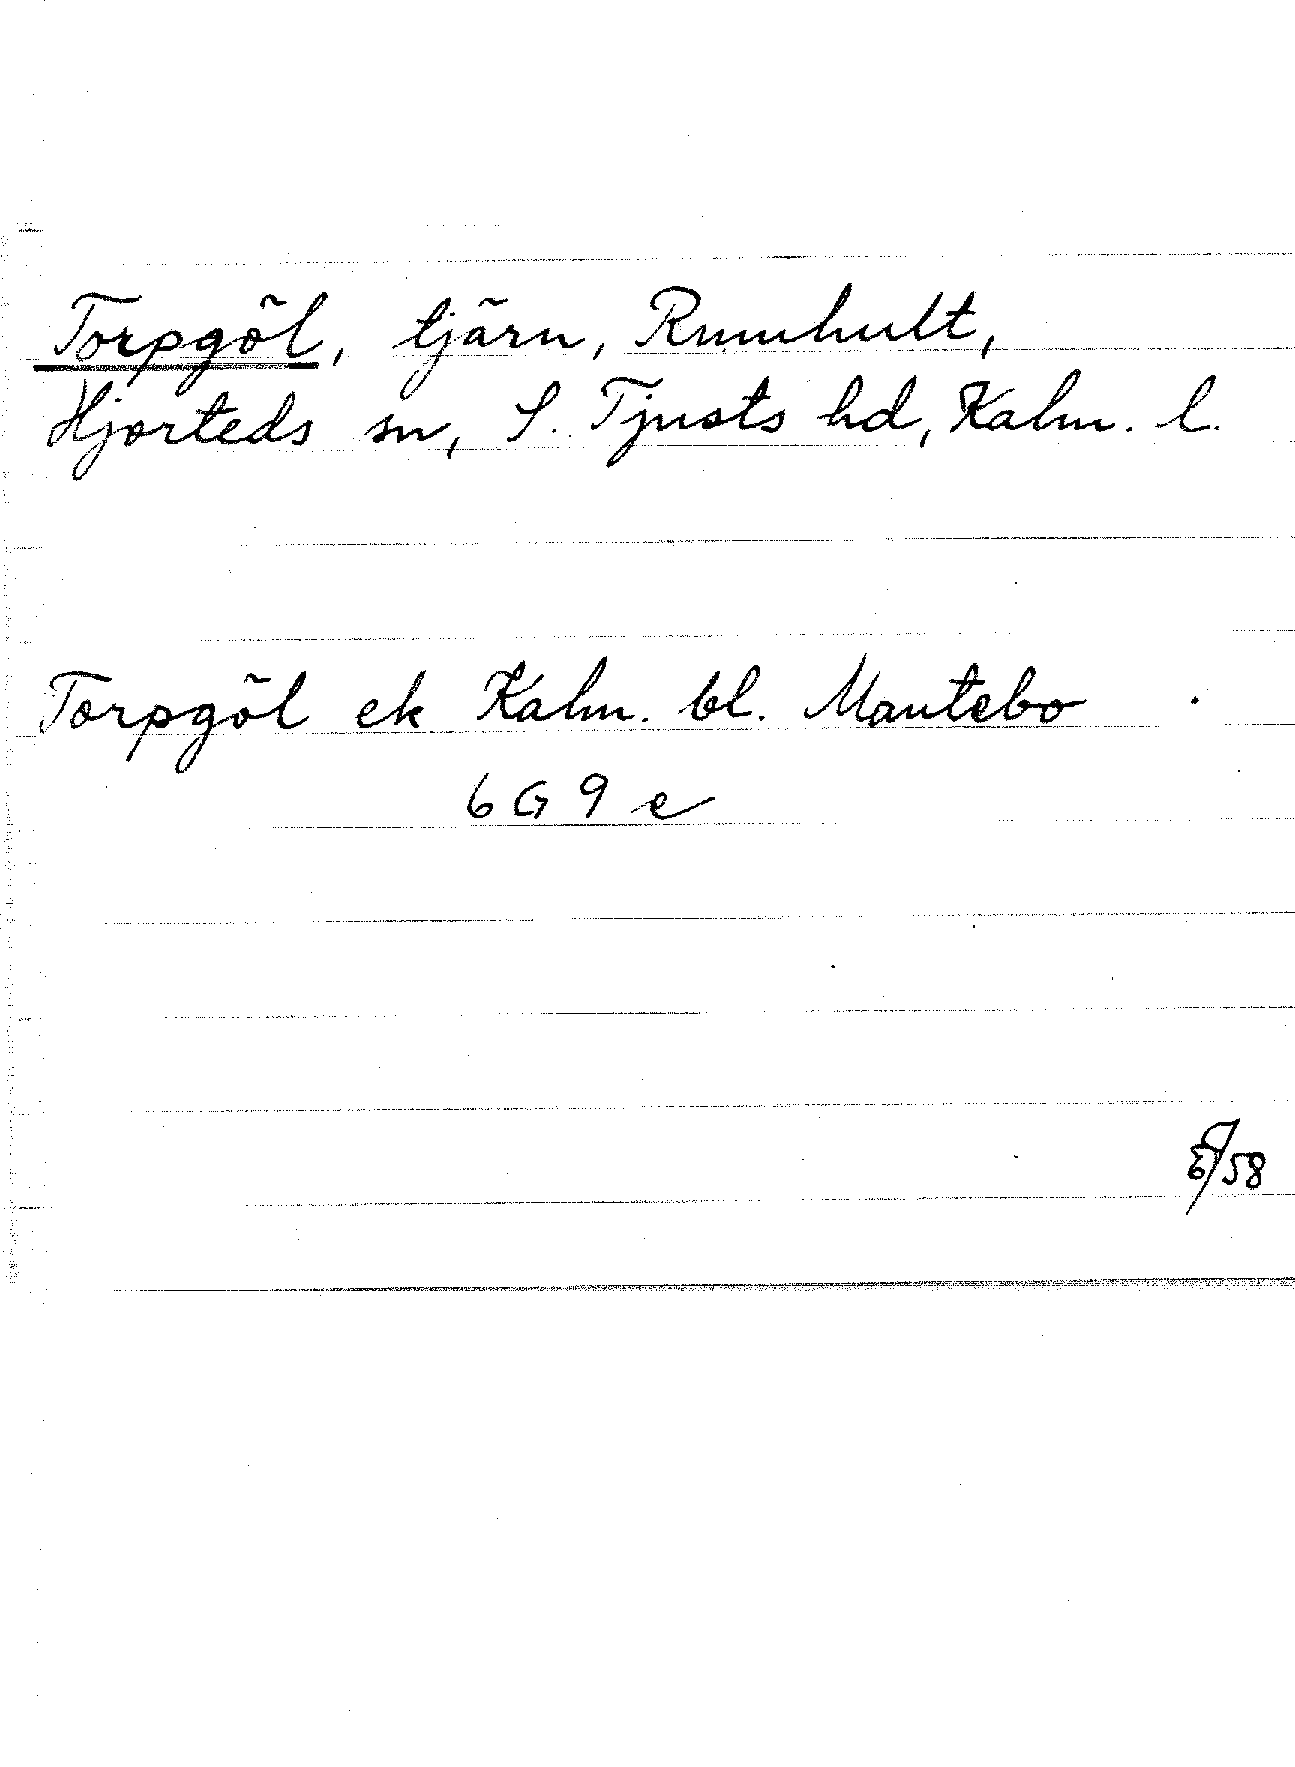 Torpgöl, tjärn, Rumhult,
Hjorteds sn, S. Tjusts hd, Kalm. l.
Torpgöl ek Kalm. bl. Mantebo
6 G 9 e
/58